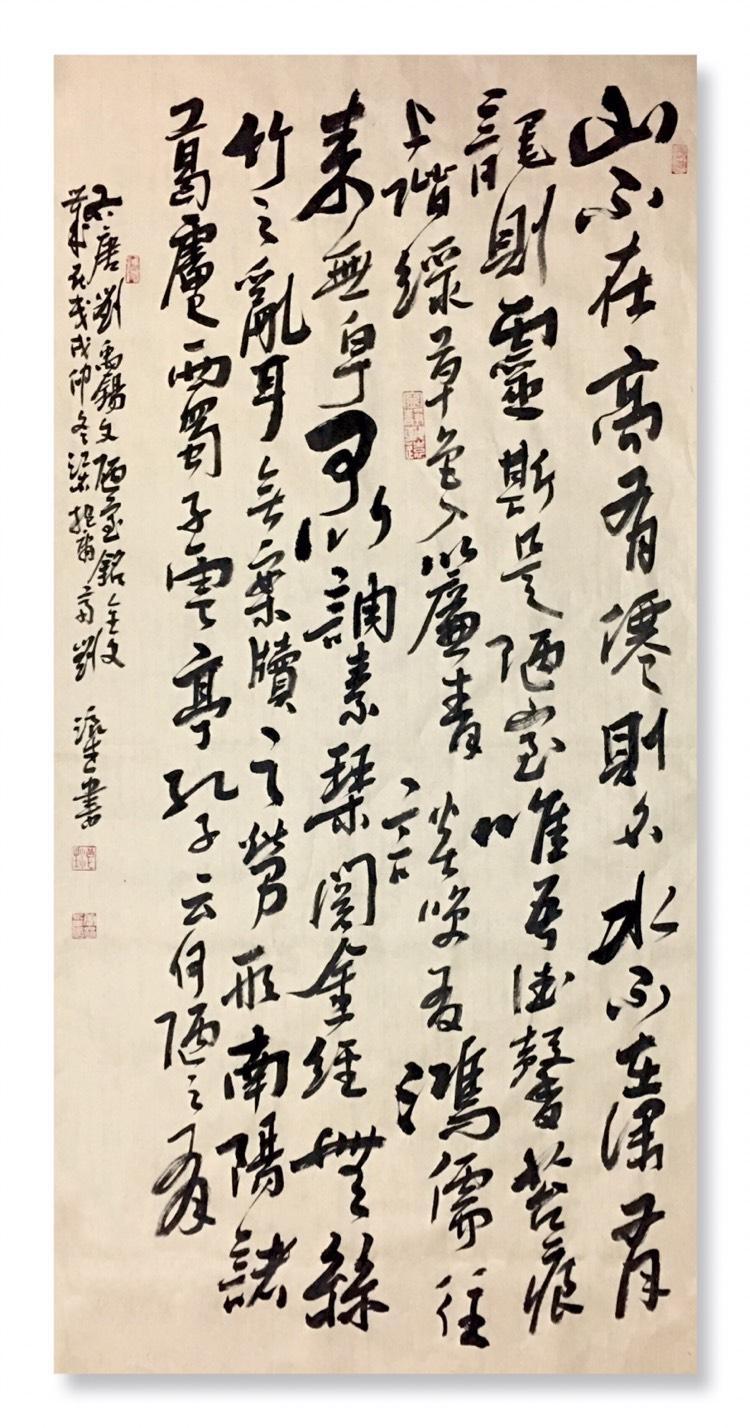 山不在高有僊則名水不在深有
龍則靈斯是陋室唯吾德馨苔痕
上階綠草色入簾青談笑有鴻儒往
來無白丁可以調素琴閱金經無絲
竹之亂耳無案牘之勞形南陽諸
葛廬西蜀子雲亭孔子云何陋之有
唐劉禹錫文陋室銘全文
歲在戊戌仲冬劉書